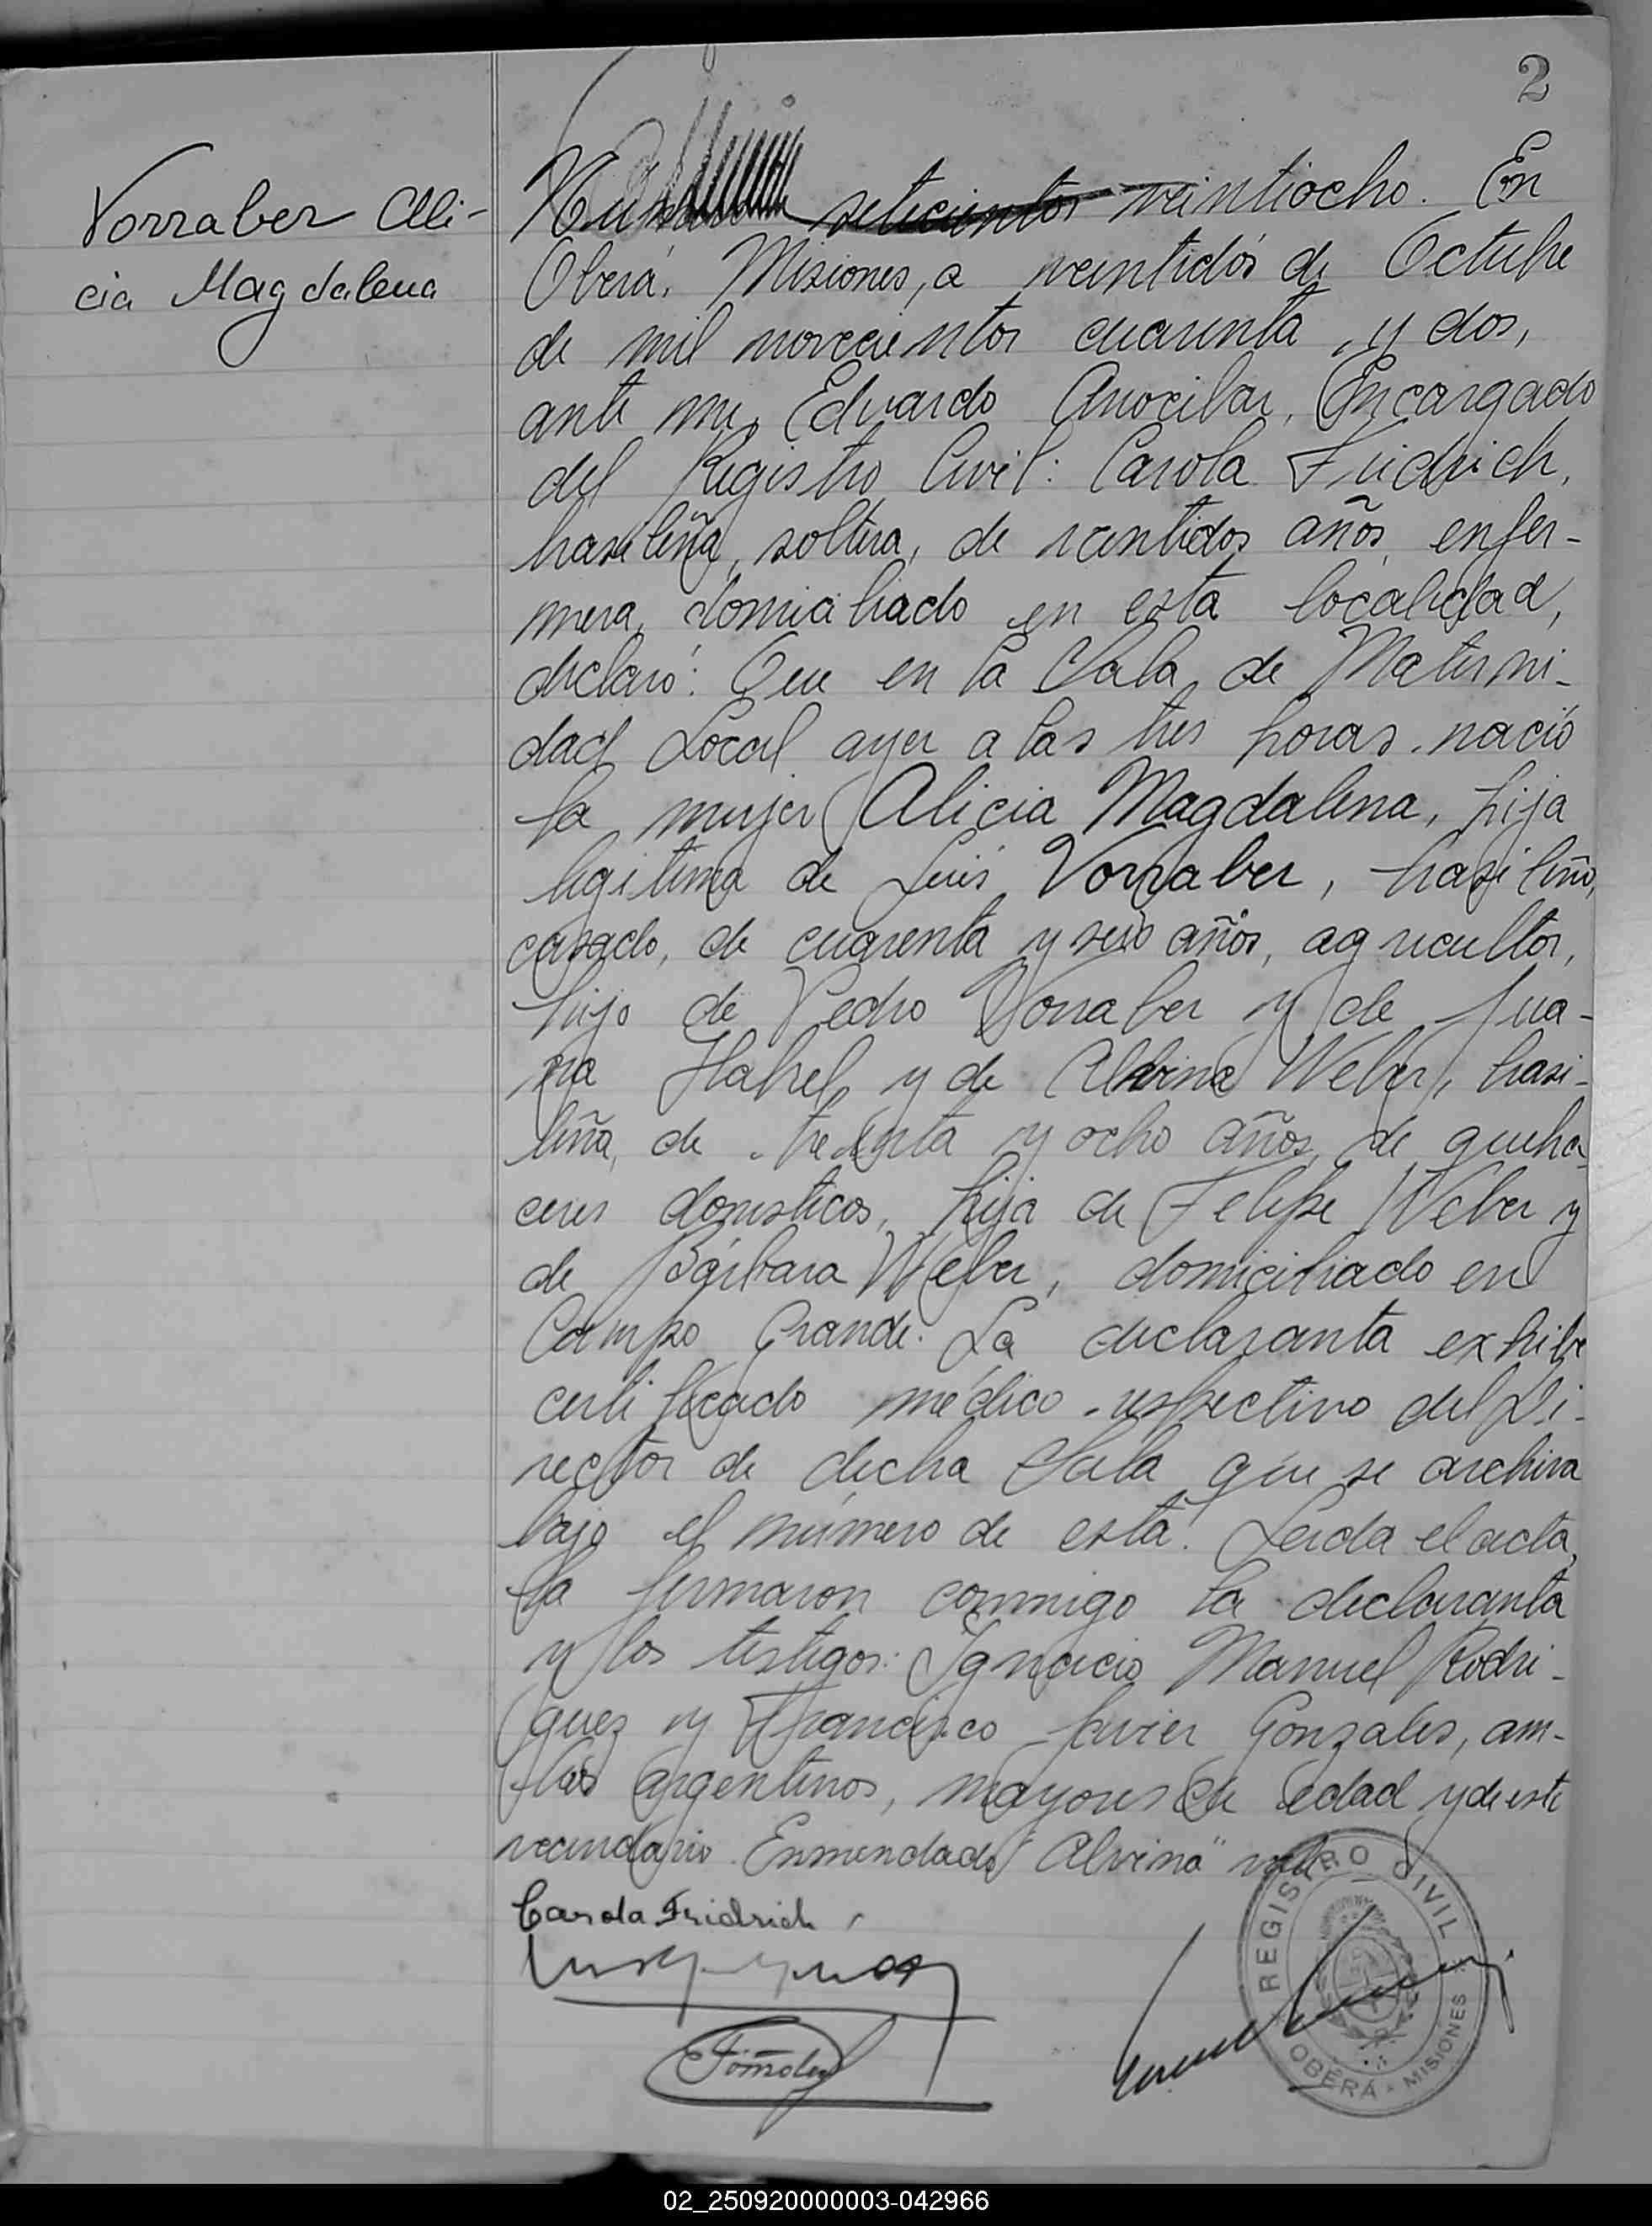 2
Vorraber Ali-
cia Magdalena
Número setecientos veintiocho. En
Oberá, Misiones, a veintidós de Octubre
de mil novecientos cuarenta y dos,
ante mi, Eduardo Encargado
del Registro Civil: Carola Fridrich,
brasileña, soltera, de veintidos años, enfer-
mera, domiciliado en esta localidad,
declaró: Que en la Sala de Materni-
dad Local ayer a las tres horas nació
la mujer Alicia Magdalena, hija
legitima de Luis Vorraber, brasileño,
casado, de cuarenta y seis años, agricultor,
hijo de Pedro Vorraber y de Jua-
na y de Alvina Weber, brasi-
leña, de treinta y ocho años, de queha-
ceres domesticos, hija de Felipe Weber y
de Bárbara Weber, domiciliado en
Campo Grande. La declaranta exhibe
certificado médico respectivo del Di-
rector de dicha Sala que se archiva
bajo el número de esta. Leida el acta,
la firmaron conmigo la declaranta
y los testigos: Ignacio Manuel Rodri-
guez y Francisco Javier Gonzales, am-
bos argentinos, mayores de edad y de este
vecindario. Enmendado "Alvina" vale
Carola Fridrich
REGISTRO CIVIL
OBERÁ - MISIONES
02_250920000003-042966